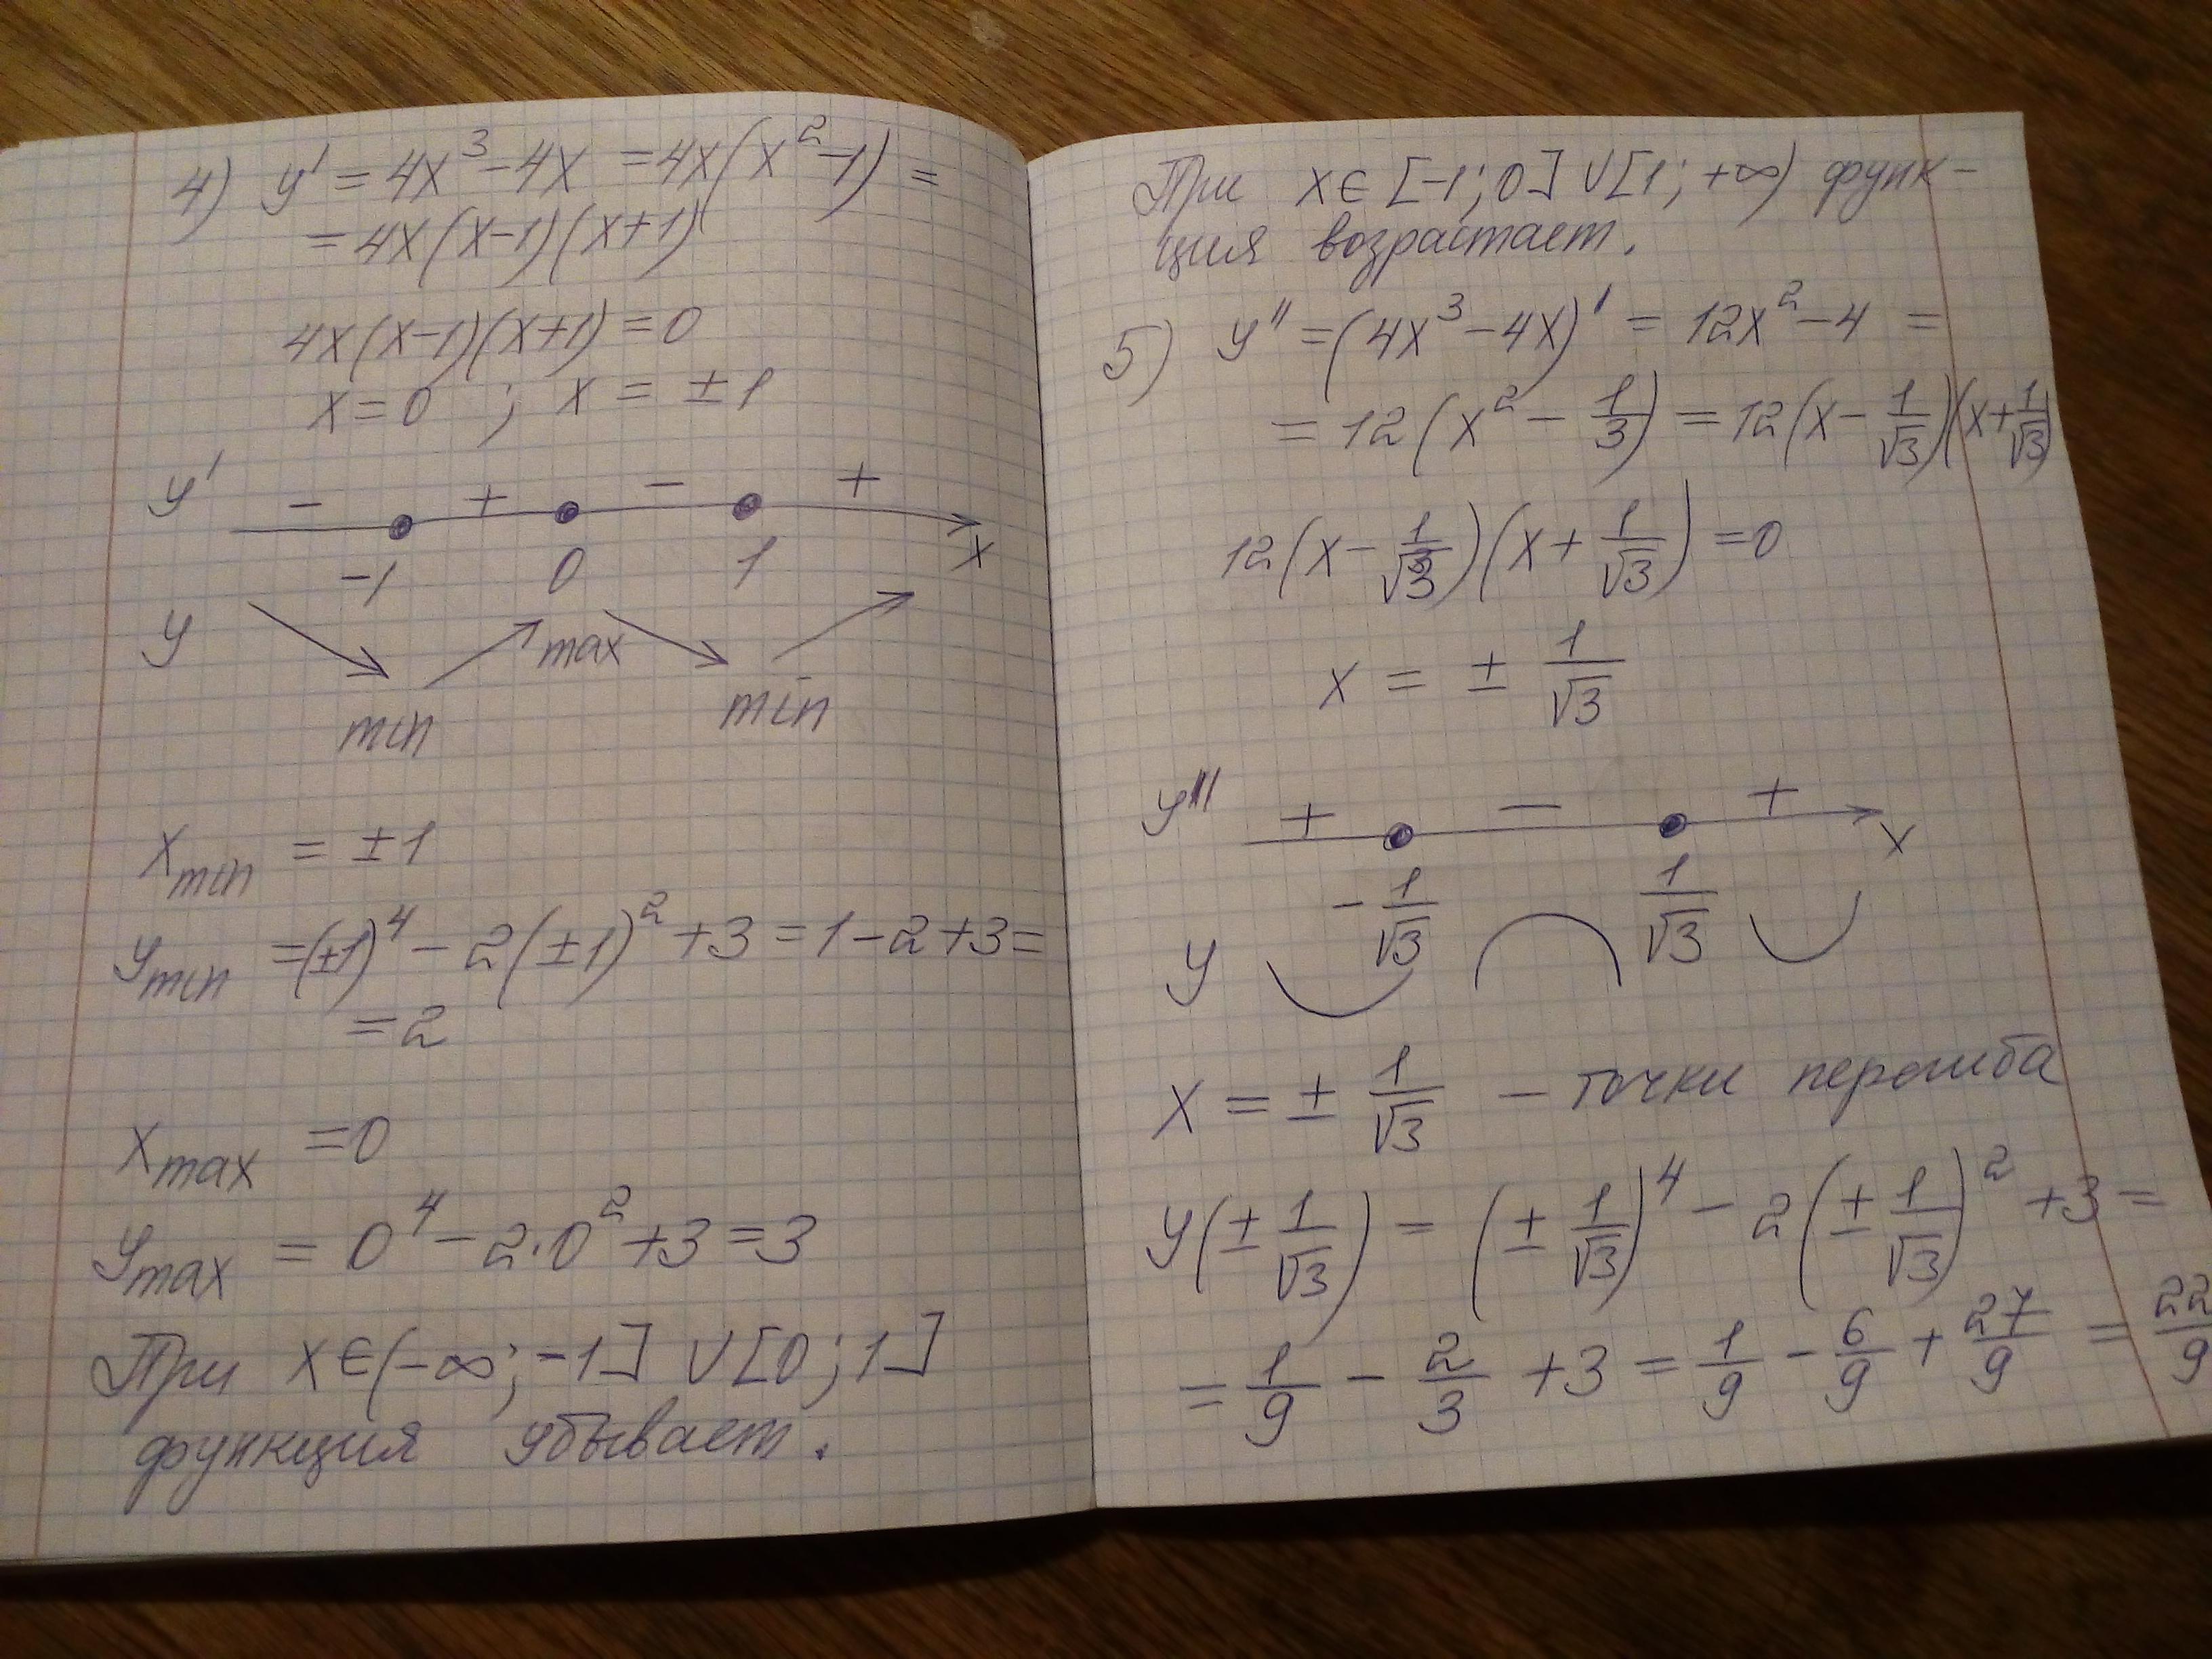 4) y' = 4x³ - 4x = 4x(x² - 1) =
= 4x(x-1)(x+1)
4x(x-1)(x+1) = 0
x = 0 ; x = ±1
y' - + - +
-1 0 1 x
y max
min min
x_min = ±1
y_min = (±1)⁴ - 2(±1)² + 3 = 1 - 2 + 3 =
= 2
x_max = 0
y_max = 0⁴ - 2·0² + 3 = 3
При x ∈ (-∞; -1] ∪ [0; 1]
функция убывает.
При x ∈ [-1; 0] ∪ [1; +∞) функ-
ция возрастает.
5) y'' = (4x³ - 4x)' = 12x² - 4 =
= 12(x² - 1/3) = 12(x - 1/√3)(x + 1/√3)
12(x - 1/√3)(x + 1/√3) = 0
x = ± 1/√3
y'' + - +
-1/√3 1/√3 x
y
x = ± 1/√3 - точки перегиба
y(± 1/√3) = (± 1/√3)⁴ - 2(± 1/√3)² + 3 =
= 1/9 - 2/3 + 3 = 1/9 - 6/9 + 27/9 = 22/9